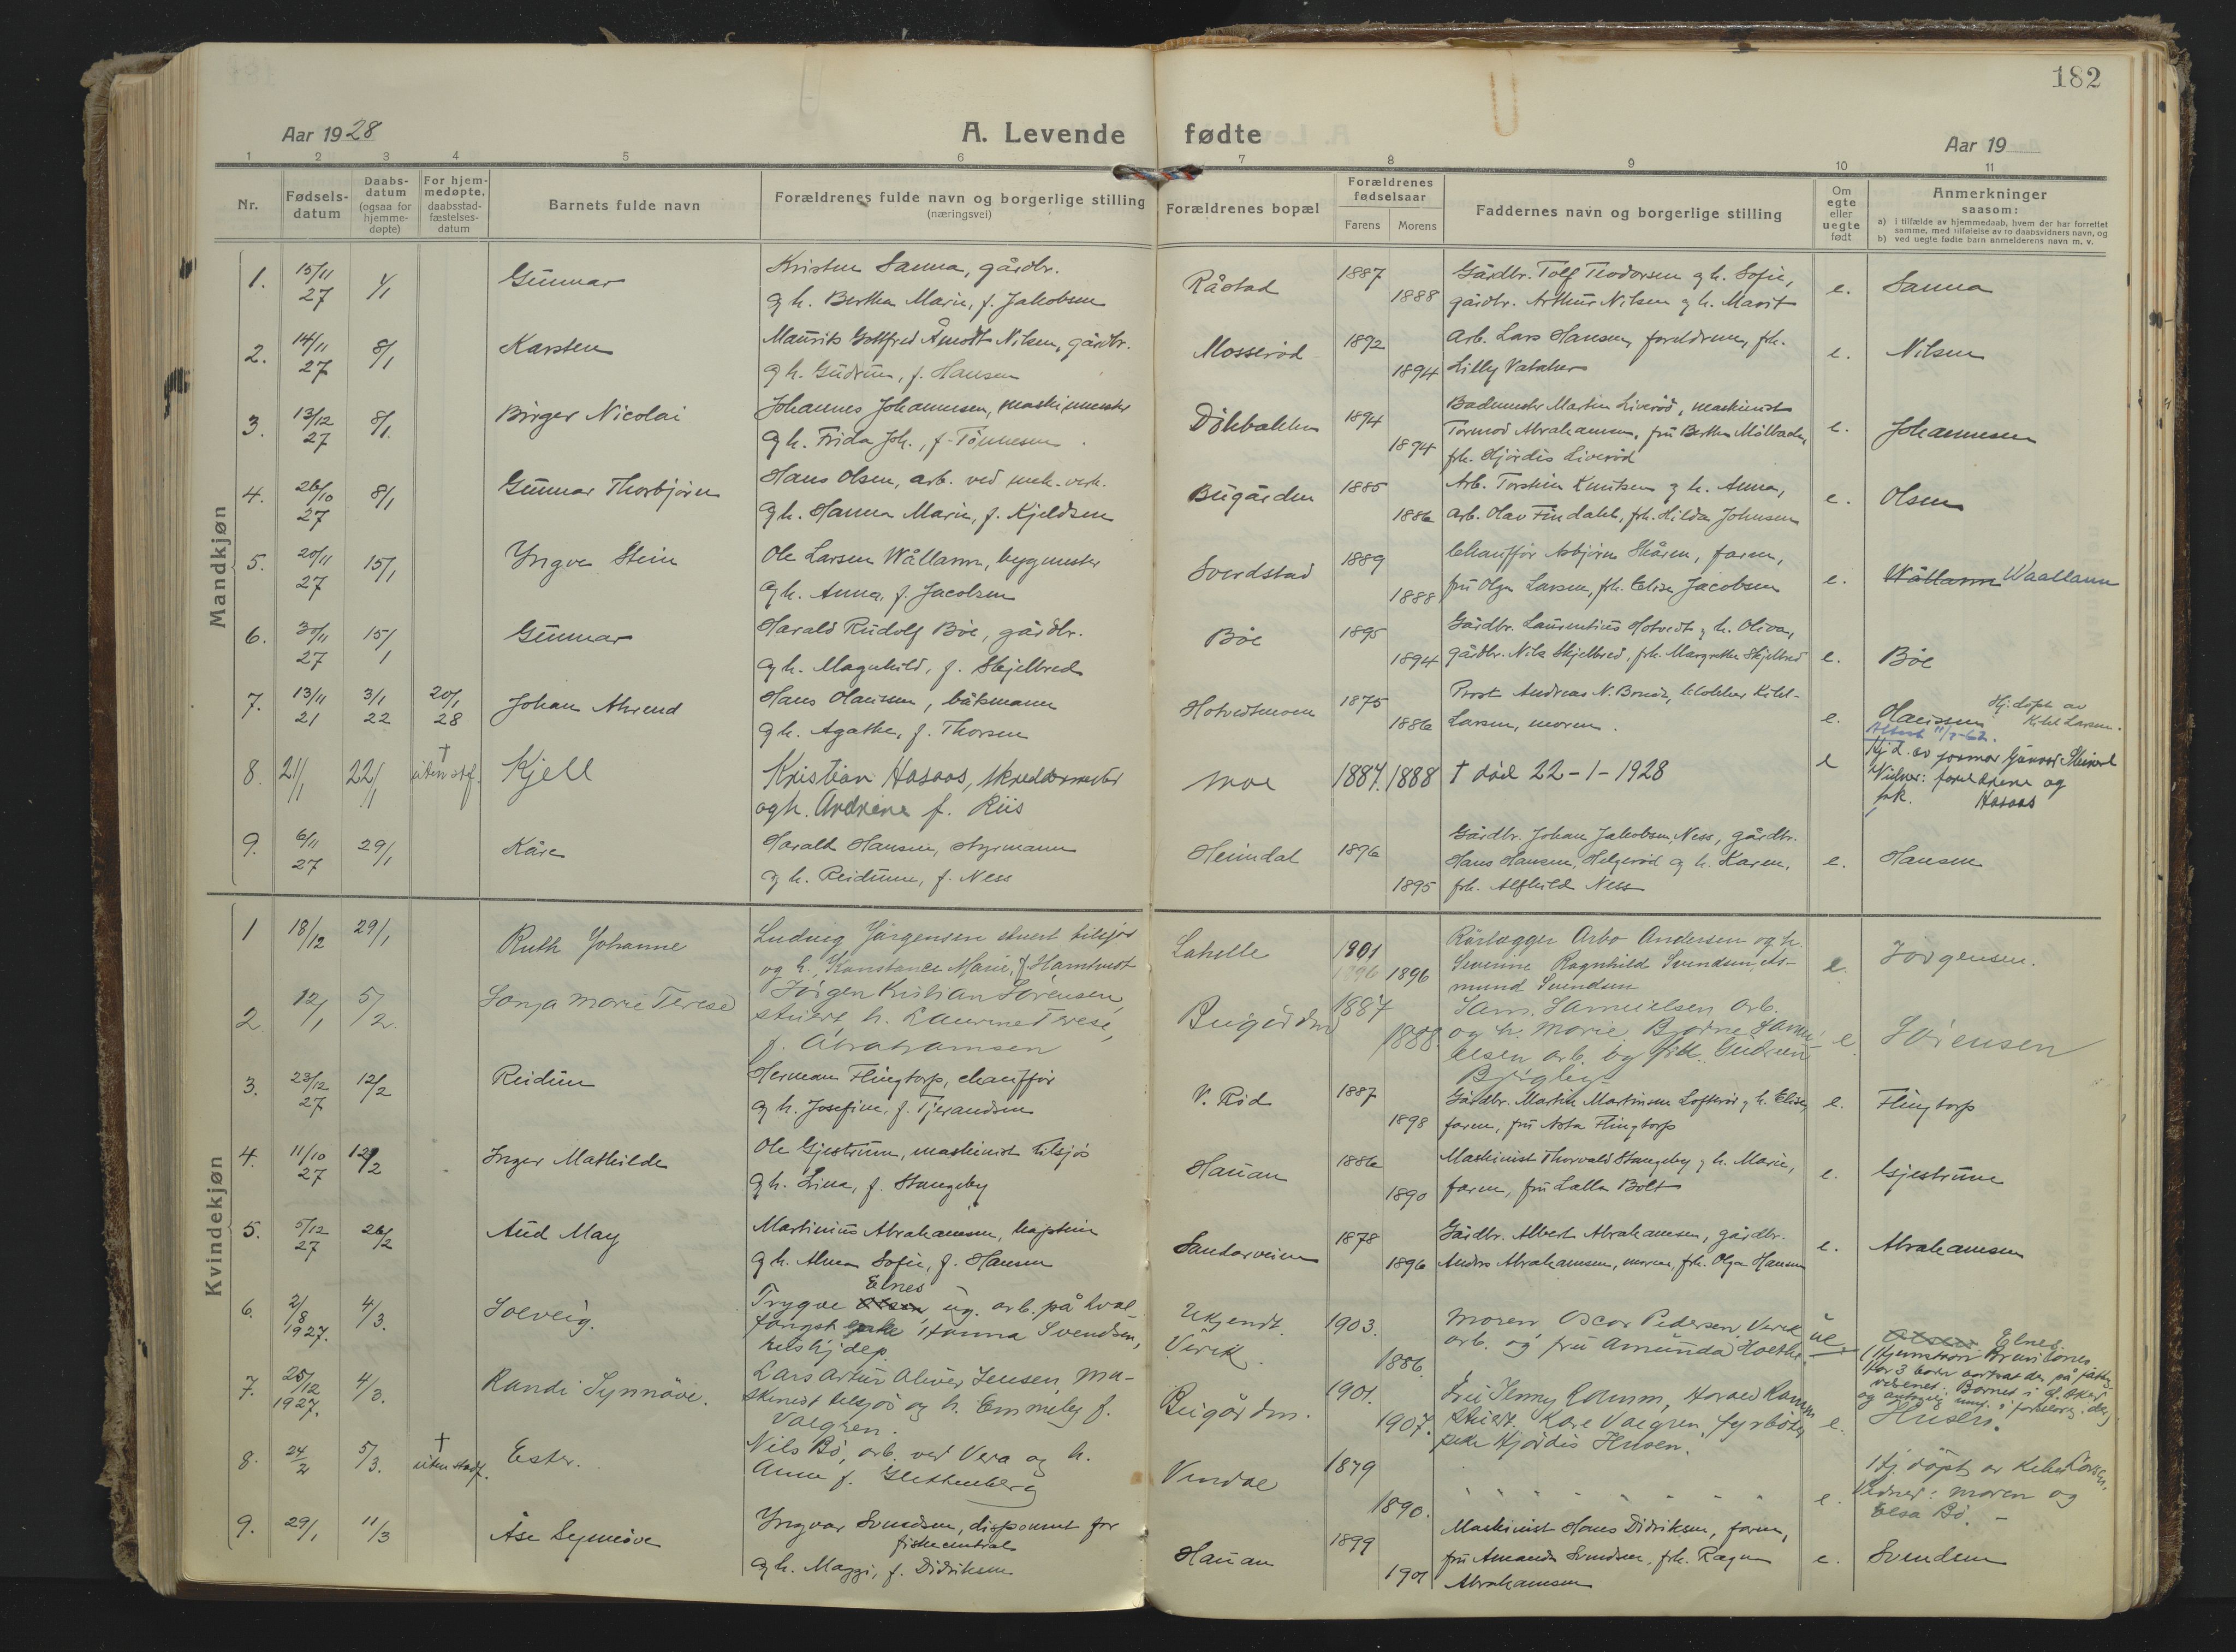 182
Aar 1928
A. Levende fødte
Aar 19
1 2 3 4 5 6 7 8 9 10 11
Nr.
Fødsels-
datum
Daabs-
datum
(ogsaa for
hjemme-
døpte)
For hjem-
medøpte,
daabsstad-
fæstelses-
datum
Barnets fulde navn
Forældrenes fulde navn og borgerlige stilling
(næringsvei)
Forældrenes bopæl
Forældrenes
fødselsaar
Farens Morens
Faddernes navn og borgerlige stilling
Om
egte
eller
uegte
født
Anmerkninger
saasom:
a) i tilfælde av hjemmedaab, hvem der har forrettet
samme, med tilføielse av to daabsvidners navn, og
b) ved uegte fødte barn anmelderens navn m. v.
Mandkjøn
1. 15/11 27 1/1 Gunnar
Kristen Sanna, gårdbr.
og h. Bertha Marie, f. Jakobsen
Råstad 1887 1888
Gårdbr. Tolf Teodorsen og h. Sofie,
gårdbr. Arthur Nilsen og h. Marit
e. Sanna
2. 14/11 27 8/1 Karsten
Maurits Gottfred Åmodt Nilsen, gårdbr.
og h. Gudrun, f. Hansen
Mosserød 1892 1894
Arb. Lars Hansen, foreldrene, frk.
Lilly
e. Nilsen
3. 13/12 27 8/1. Birger Nicolai
Johannes Johannesen, maskinmester
og h. Frida Joh., f. Tønnesen
Dølebakken 1894 1894
Bademester Martin Liverød, maskinist
Tormod Abrahamsen, fru Berthe
frk. Hjørdis Liverød
e. Johannesen
4. 26/10 27 8/1 Gunnar Thorbjørn
Hans Olsen, arb. ved mek. verk.
og h. Hanna Marie, f. Kjeldsen
Bugården 1885 1886
Arb. Torstein Knutsen og h. Anna,
arb. Olav Findahl, frk. Hilda Johnsen
e. Olsen
5. 20/11 27 15/1 Yngve Stein
Ole Larsen Wållann, byggmester
og h. Anna, f. Jacobsen
Sverdstad 1889 1888
Chauffør Asbjørn Skåren, faren,
fru Olga Larsen, frk. Elise Jacobsen
e. Wållann Waallann
6. 30/11 27 15/1 Gunnar
Harald Rudolf Bøe, gårdbr.
og h. Magnhild, f. Skjelbred
Bøe 1895 1894
Gårdbr. Laurentius Hotvedt og h. Oliva,
gårdbr. Nils Skjelbred, frk. Margrethe Skjelbred
e. Bøe
7. 13/11 21 3/1 22 20/1 28 Johan Ahrend
Hans Olaussen, båtsmann
og h. Agathe, f. Thorsen
Hotvedtmoen 1875 1886
Prost Andreas N. Brude, klokker Kihl-
Larsen, moren.
e. Olaussen Hj. døpt av
Kihl Larsen.
8. 21/1 22/1 † uten stf. Kjell
Kristian Hasaas, skreddermester
og h. Andrine f. Riis
Moe 1887. 1888
† død 22-1-1928
e Hj. d. av jormor
Vidner: foreldrene og
frk. Hasaas
9. 6/11 27 29/1 Kåre
Harald Hansen, styrmann
og h. Reidunn, f. Ness
Heimdal 1896 1895
Gårdbr. Johan Jakobsen Ness, gårdbr.
Hans Hansen, Helgerød og h. Karen,
frk. Alfhild Ness
e. Hansen
Kvindekjøn
1 18/12 29/1 Ruth Johanne
Ludvig Jørgensen stuert tilsjøs
og h. Konstance Marie, f. Hamtvedt
Lahelle 1901 1896 1896
Rørlægger Arbo Andersen og h.
Severine Ragnhild Svendsen, As-
mund Svendsen
e. Jørgensen.
2. 12/1 5/2. Sonja Marie Terese
Jørgen Kristian Sørensen,
stuert, h. Laurine Terese,
f. Abrahamsen
Bugården 1887 1888.
Sam. Samuelsen arb.
og h. Marie. Bjarne Samu-
elsen arb. og frk. Gudrun
e. Sørensen
3. 23/12 27 12/2 Reidun
Herman Flingtorp, chauffør
og h. Josefine, f. Tjerandsen
V. Rød 1887 1898
Gårdbr. Martin Martinsen Lofterød og h. Elise,
faren, fru Asta Flingtorp
e. Flingtorp
4. 11/10 27 12/2 Inger Mathilde
Ole Gjestrum, maskinist tilsjøs
og h. Lina, f. Stangeby
Hauan 1886 1890
Maskinist Thorvald Stangeby og h. Marie,
faren, fru Lalla Bolt
e. Gjestrum
5. 5/12 27 26/2 Aud May
Martinius Abrahamsen, kaptein
og h. Alma Sofie, f. Hansen
Sandarveien 1878 1896
Gårdbr. Albert Abrahamsen, gårdbr.
Anders Abrahamsen, moren, frk. Olga Hansen
e. Abrahamsen
6. 2/8 1927. 4/3. Solveig.
Elnes
Trygve Olsen, ug. arb. på hval-
fangst Hanna Svendsen,
Ukjendt. Virik. 1903. 1886.
Moren, Oscar Pedersen, Virik
arb. og fru Amunda Holthe.
ue. Olsen Elnes.
7. 25/12 1927. 4/3. Randi Synnøve.
Lars Artur Oliver Jensen, ma-
skinist tilsjøs og h. Emmely f.
Valgren.
Bugården. 1901. 1907.
Fru Jenny Ramm, Harald Ramm
stuert. Kåre Valgren, fyrbøter
Hjørdis Husen.
e.
8. 24/2 5/3. † uten stadf. Ester.
Nils Bø, arb. ved Vera og h.
Anna f. Glettenberg
Vindal 1879 1890.
e. Hj. døpt av Larsen.
Vidner: moren og
Elsa Bø.
9. 29/1 11/3 Åse Synnøve
Yngvar Svendsen, disponent for
fiskecentral
og h. Maggi, f. Didriksen
Hauan 1899 1901
Maskinist Hans Didriksen, faren,
fru Amanda Svendsen, frk. Ragna
Abrahamsen
e. Svendsen